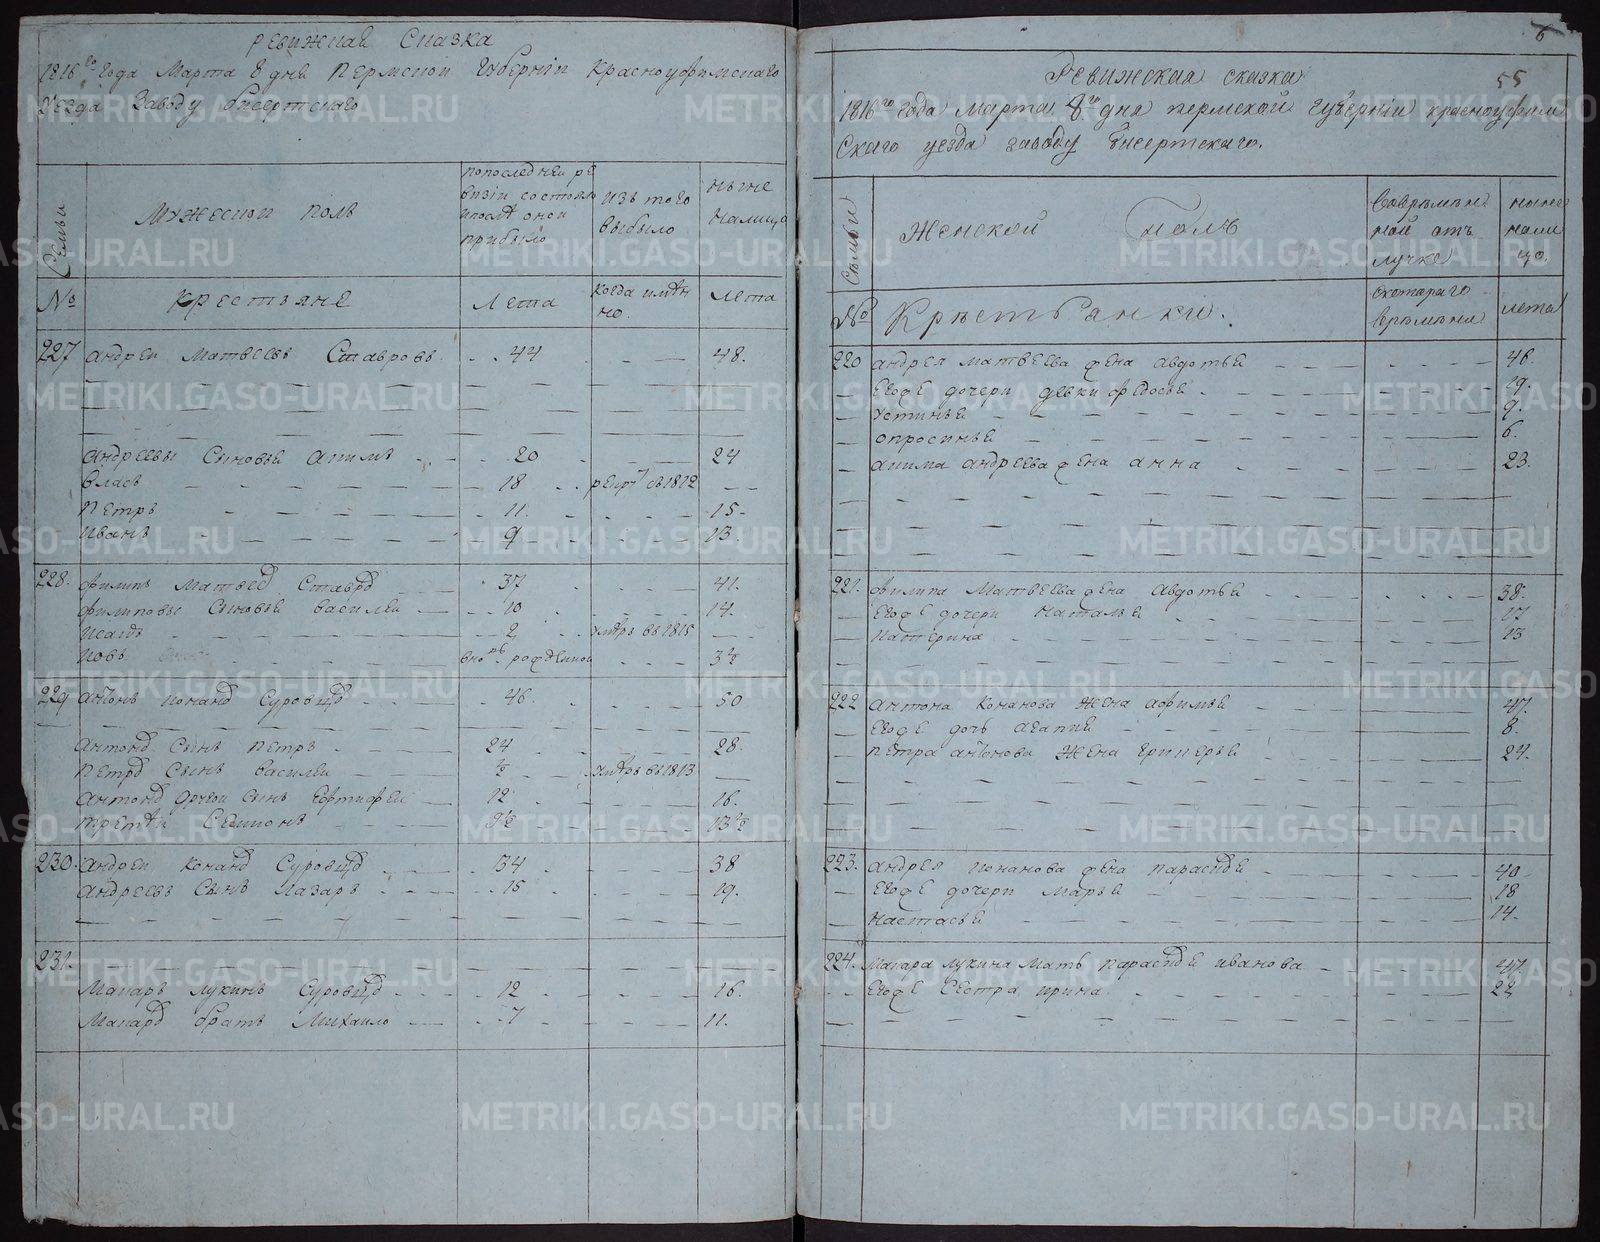 Ревижная Сказка
1816го года Марта 8 дня Пермской Губернiи Красноуфимскаго
Уезда Заводу бисертскаго
Семьи
Мужескои полъ
попоследней ре
визiи состояло
и после онои
прибыло
изъ того
выбыло
ныне
налицо
№
Крестьяне
Лета
когда имян
но.
лета
227 андреи Матвеевъ Ставровъ. 44 48.
андреевы Сыновье 20 24
власъ 18 рекрт въ 1812
Петръ 11. 15.
иванъ 9 13.
228. филипъ Матвеев Ставров 37 41.
филиповы Сыновье василеи 10 14.
Исакъ 2 умꙗръ въ 1815
иовъ вновь рожденнои 3½
229 антонъ Конанов Суровцов 46. 50
антонов Сынъ петръ 24 28.
петров Сынъ василеи ½ умꙗръ въ 1813
антонов другои сынъ 12 16.
третеи Семионъ 9½ 13½
230. андреи Конанов Суровцов 34 38
андреевъ Сынъ Лазарь 15 19.
231.
Макаръ лукинъ Суровцов 12 16.
Макаров братъ Михаило 7 11.
6
55
Ревижская сказка
1816го года Марта 8го дня пермской губернiи красноуфим
Скаго уезда заводу бисертскаго.
Семьи
Женской Полъ
во временно
ной отъ
лучке
ныне
нали
цо.
№
Крестьянки.
с котораго
времѣни
лета
220 андрея матвеева жена авдотья 46.
Егоже дочери девки федосья 19.
устинья 9.
опросинья 6.
акима андреева жена анна 23.
221. филипа Матвеева жена авдотья 38.
Егоже дочери наталья 17
катерина 13
222 антона Конанова жена афимья 47.
Егоже дочь агапия 8.
петра антонова жена 24.
223. андрея конанова жена парасковья 40
Егоже дочери марья 18
настасья 14.
224. Макара лукина мать парасковья иванова 47
Егоже Сестра ирина. 22
METRIKI.GASO-URAL.RU